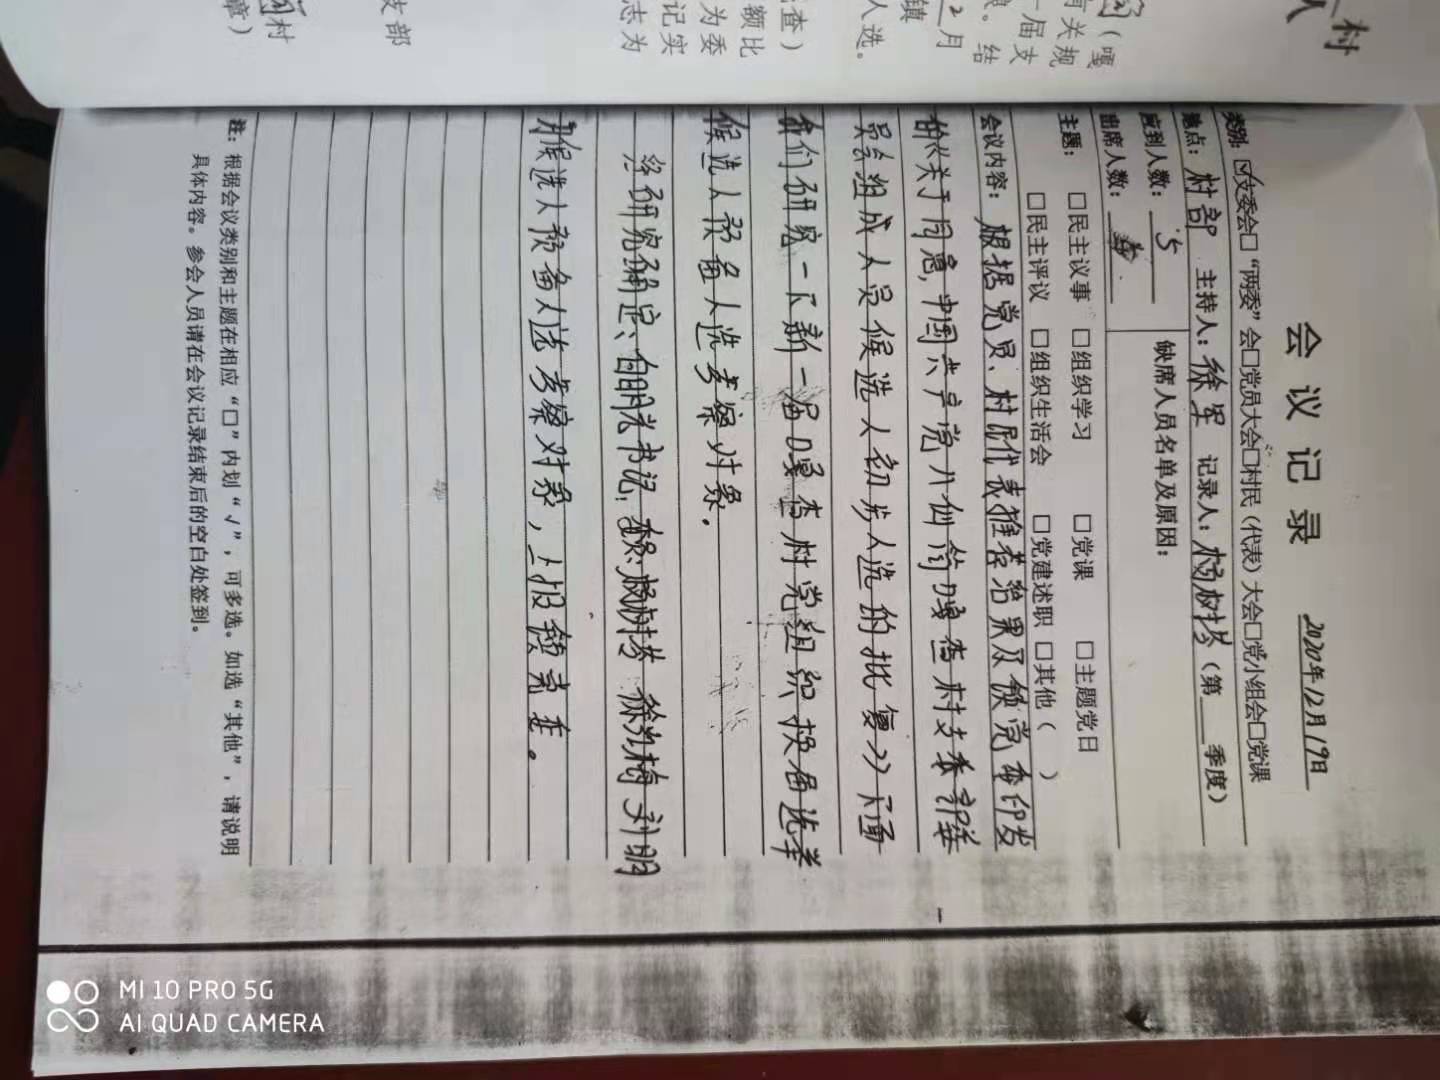 会议记录
2020年12月19日
类别: ☑支委会□“两委”会□党员大会□村民（代表）大会□党小组会□党课
地点: 村部 主持人: 徐军 记录人: 杨树芬（第 季度）
应到人数: 5 缺席人员名单及原因:
出席人数:
主题: □民主议事 □组织学习 □党课 □主题党日
□民主评议 □组织生活会 □党建述职 □其他（ ）
会议内容: 根据党员、村民代表推荐结果及镇党委印发
的《关于同意中国共产党 嘎查村支委
员会组成人员候选人初步人选的批复》下面
我们研究一下新一届嘎查村党组织换届选举
候选人预备人选考察对象。
经研究确定、白明光书记, 杨树芬 徐桂梅 刘明
为候选人预备人选考察对象，上报镇党委。
注: 根据会议类别和主题在相应“□”内划“√”，可多选。如选“其他”，请说明
具体内容。参会人员请在会议记录结束后的空白处签到。
村
（嘎
有关规
一届支
结
2月
镇
人选。
查）
额比
为委
记实
志为
支部
村
章）
MI 10 PRO 5G
AI QUAD CAMERA